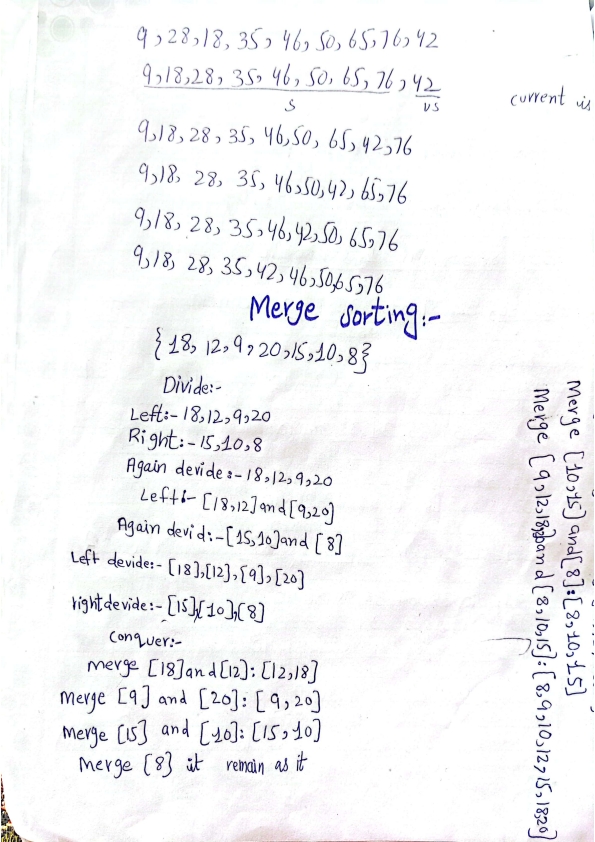 9,28,18,35,46,50,65,76,42
9,18,28,35,46,50,65,76,42
S
US
current is
9,18,28,35,46,50,65,42,76
9,18,28,35,46,50,42,65,76
9,18,28,35,46,42,50,65,76
9,18,28,35,42,46,50,65,76
Merge sorting:-
{18,12,9,20,15,10,8}
Divide:-
Left:-18,12,9,20
Right:-15,10,8
Again devide:-18,12,9,20
Left:-[18,12]and[9,20]
Again devid:-[15,10]and [8]
Left devide:-[18],[12],[9],[20]
right devide:-[15],[10],[8]
Conquer:-
merge [18]and[12]:[12,18]
Merge [9] and [20]:[9,20]
Merge [15] and [10]:[15,10]
Merge [8] it remain as it
Merge [10,15]and[8]:[8,10,15]
Merge [9,12,18,20]and[8,10,15]:[8,9,10,12,15,18,20]